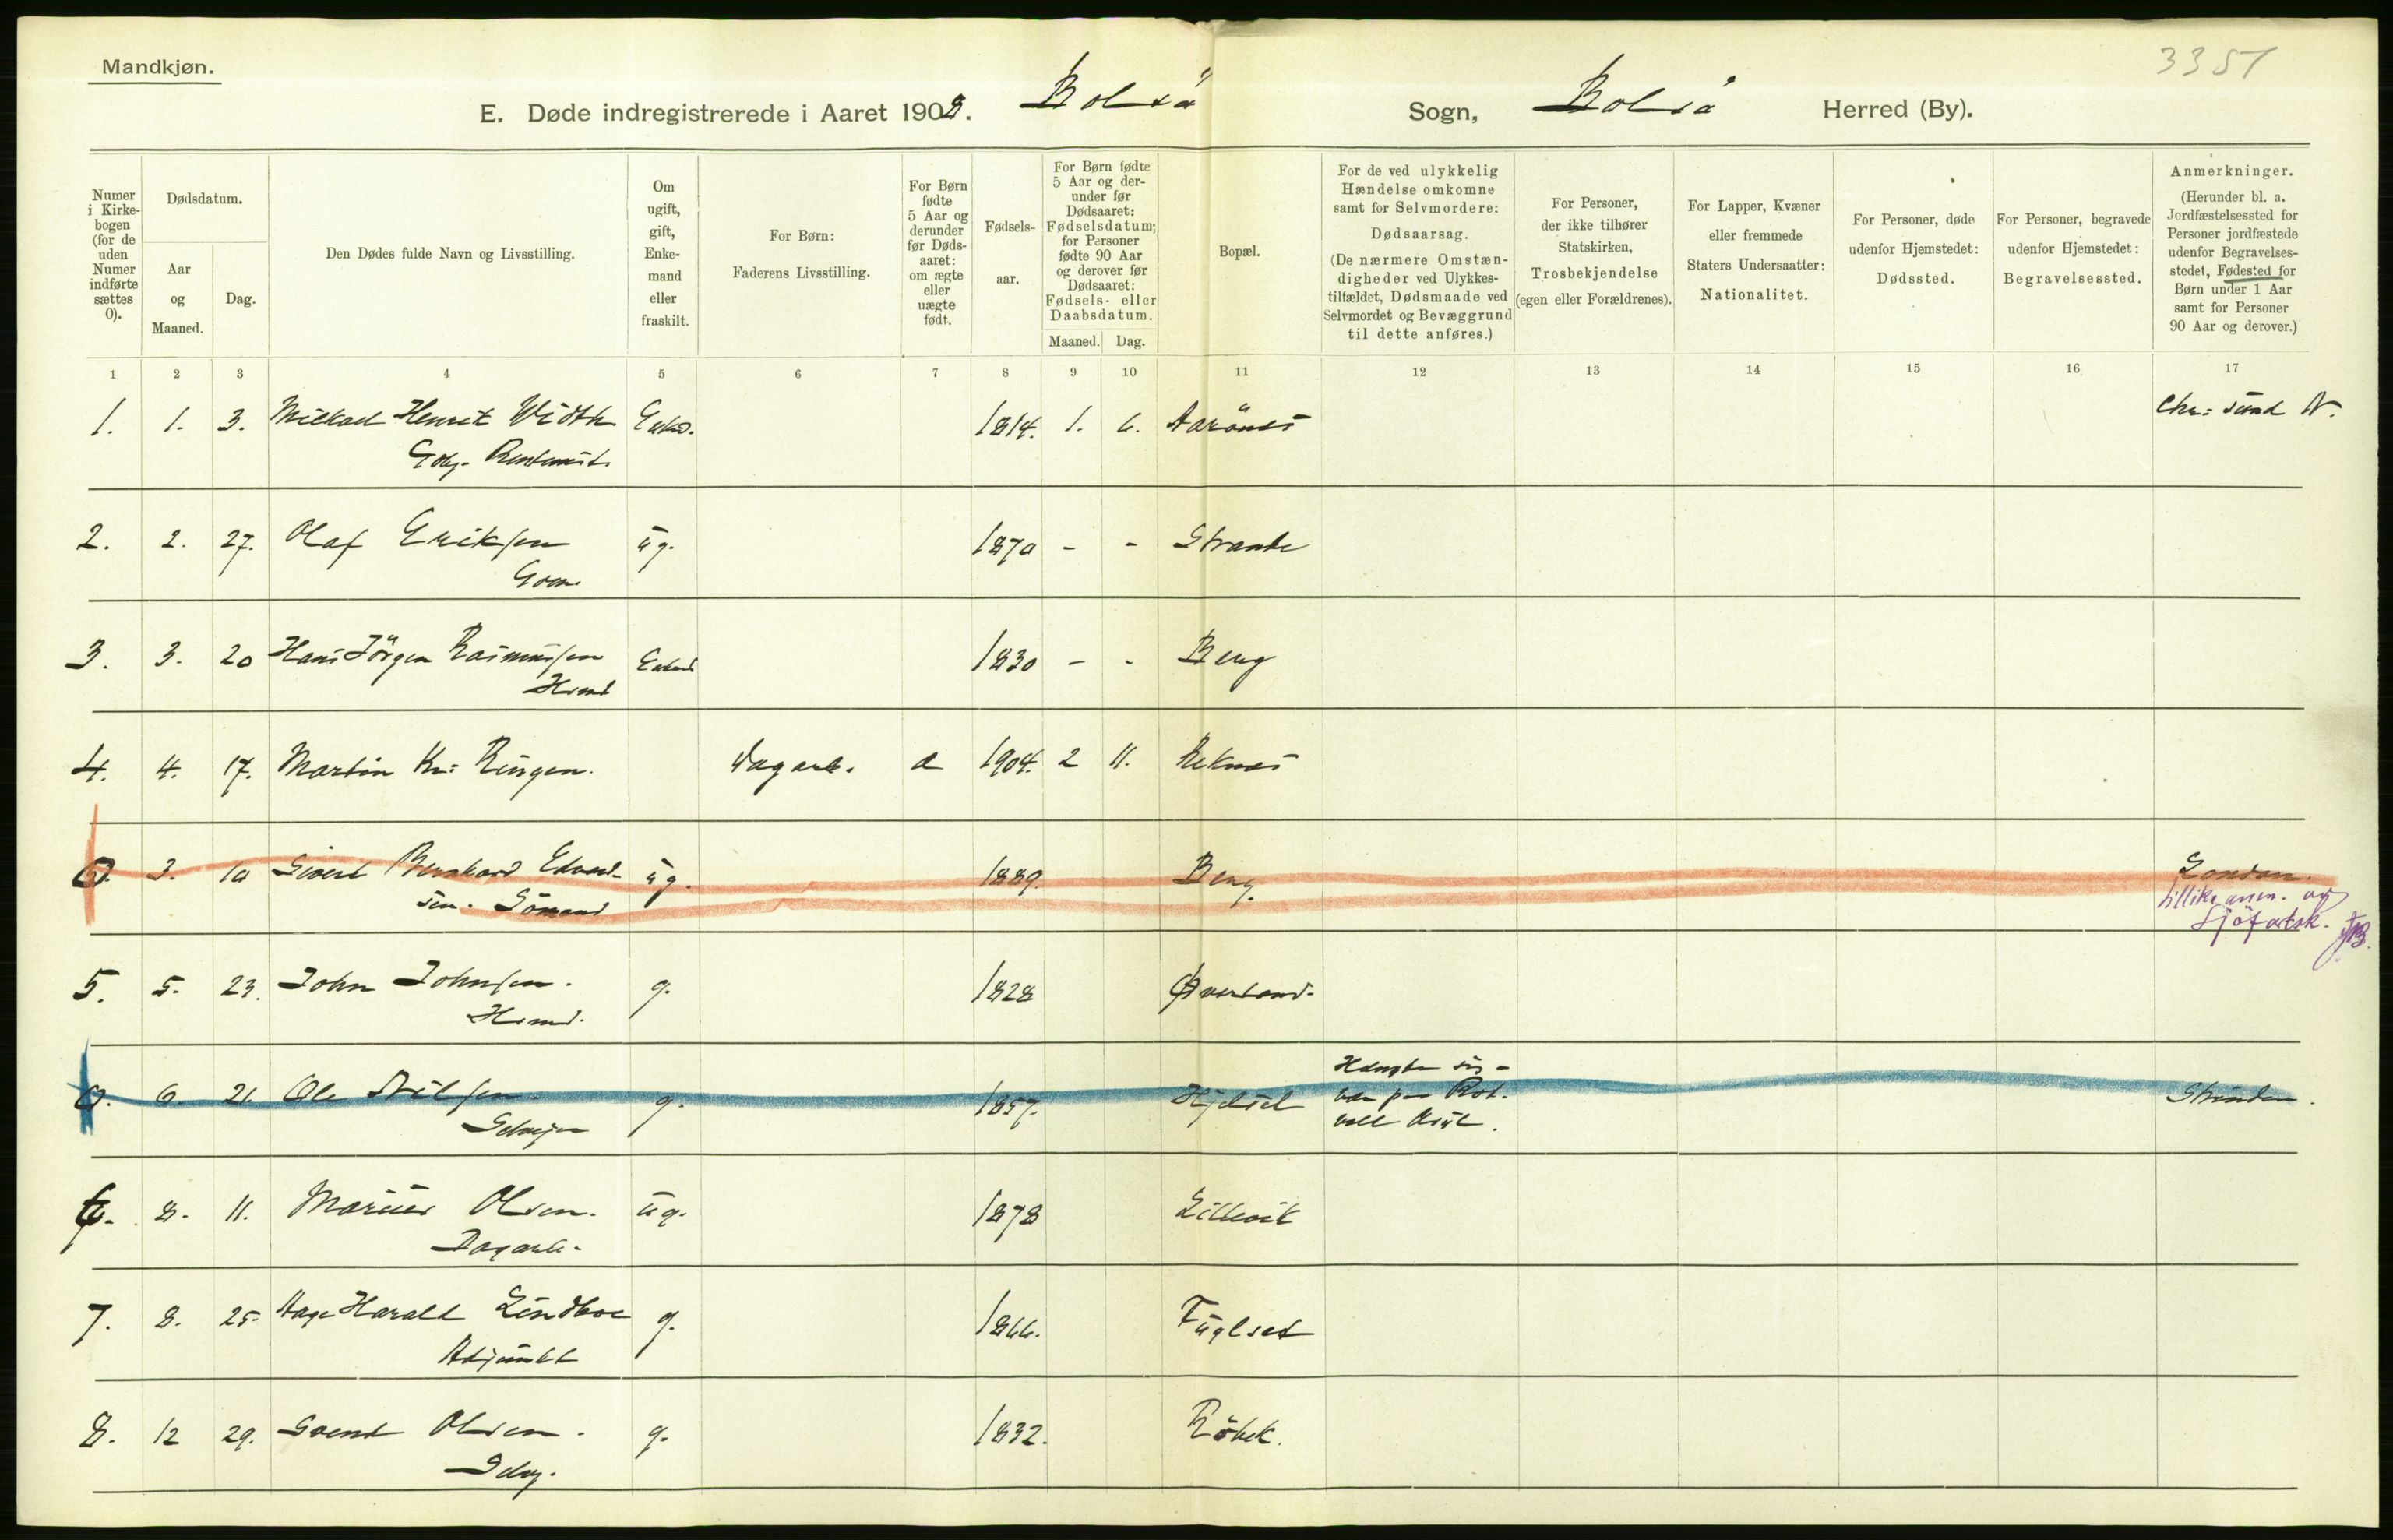 Mandkjøn.
3351
E. Døde indregistrerede i Aaret 1908. Bolsö Sogn, Bolsö Herred (By).
Numer i Kirkebogen (for de uden Numer indførte sættes 0).
Dødsdatum.
Aar og Maaned.
Dag.
Den Dødes fulde Navn og Livsstilling.
Om ugift, gift, Enkemand eller fraskilt.
For Børn:
Faderens Livsstilling.
For Børn fødte 5 Aar og derunder før Dødsaaret: om ægte eller uægte født.
Fødselsaar.
For Børn fødte 5 Aar og derunder før Dødsaaret: Fødselsdatum; for Personer fødte 90 Aar og derover før Dødsaaret: Fødsels- eller Daabsdatum.
Maaned. Dag.
Bopæl.
For de ved ulykkelig Hændelse omkomne samt for Selvmordere:
Dødsaarsag.
(De nærmere Omstændigheder ved Ulykkestilfældet, Dødsmaade ved Selvmordet og Bevæggrund til dette anføres.)
For Personer, der ikke tilhører Statskirken,
Trosbekjendelse
(egen eller Forældrenes).
For Lapper, Kvæner eller fremmede Staters Undersaatter:
Nationalitet.
For Personer, døde udenfor Hjemstedet:
Dødssted.
For Personer, begravede udenfor Hjemstedet:
Begravelsessted.
Anmerkninger.
(Herunder bl. a. Jordfæstelsessted for Personer jordfæstede udenfor Begravelsesstedet, Fødested for Børn under 1 Aar samt for Personer 90 Aar og derover.)
1 2 3 4 5 6 7 8 9 10 11 12 13 14 15 16 17
1. 1. 3. Henrik Width 1814. 1. 6. Aarönes Chr: sund N.
2. 2. 27. Olaf Eriksen ug. 1870 - - Strande
3. 3. 20 Hans Jörgen Rasmussen 1830 - - Berg
Hsmd
4. 4. 17. Martin Kr: Ringen. Dagarb. 1904. 2 11. Reknes
0. 3. 10 Sivert Bernhard Edvard- ug. 1889. Berg. London.
sen. Sömand tillike anm. og
Sjöfartsk.
5. 5. 23. John Johnsen. g. 1828 Øverland.
Hsmd.
0. 6. 21. Ole Nilsen. g. 1857. Hjelset Hængte sig - Strinden.
paa Rot-
voll Asyl.
Selvejer
6. 8. 11. Marius Olsen. ug. 1878 Lillevik
Dagarb.
7. 8. 25. Aage Harald Lindboe g. 1866. Fuglset
Adjunkt
8. 12 29. Svend Olsen. g. 1832. Röbek.
Selvj.